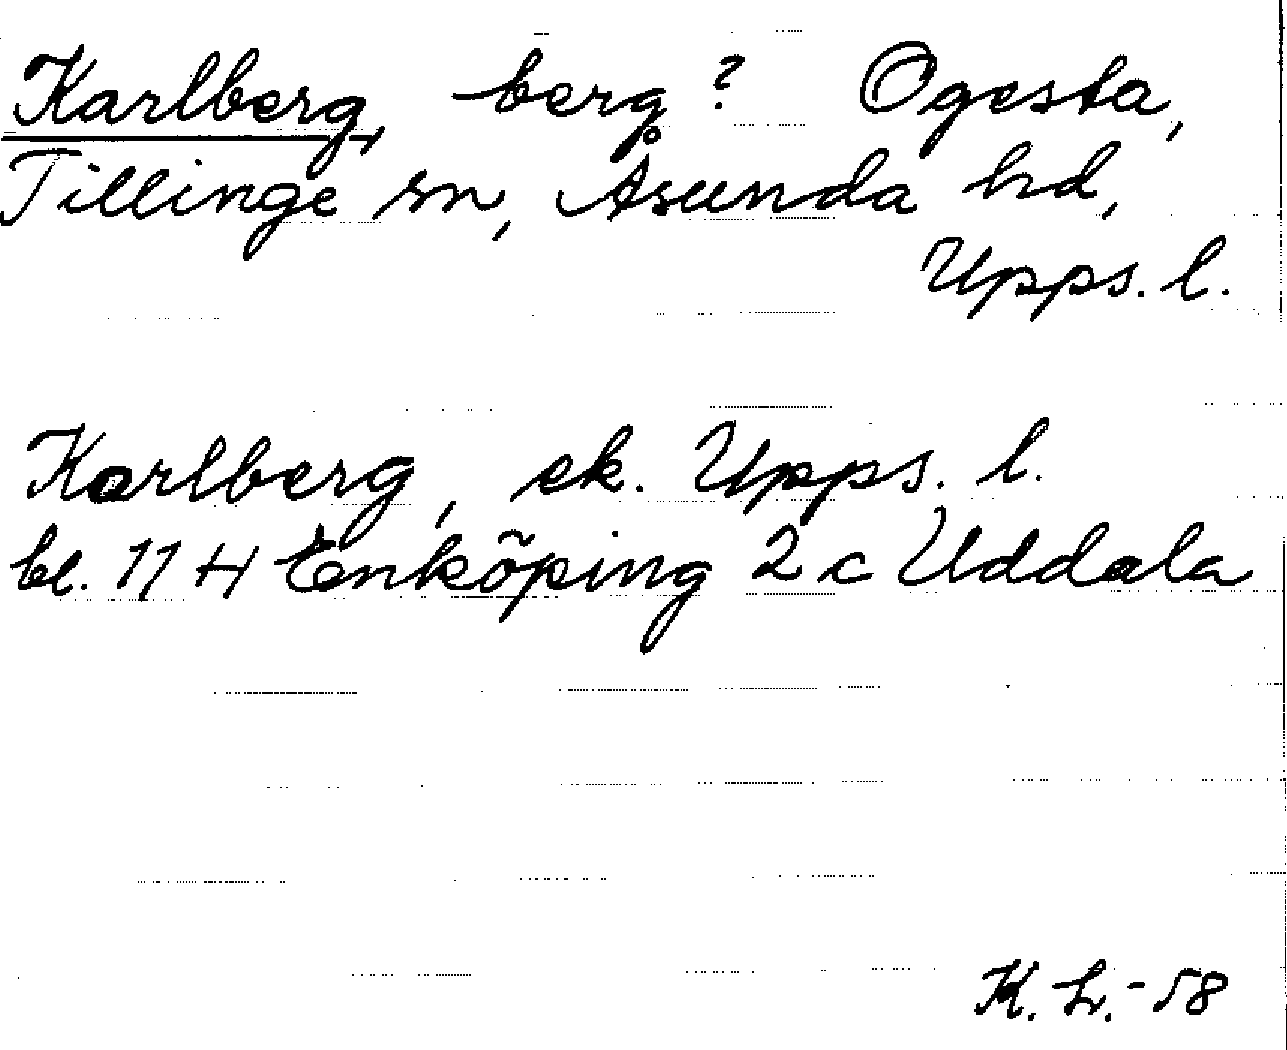 Karlberg, berg? Ogesta,
Tillinge sn, Åsunda hd,
Upps. l.
Karlberg, ek. Upps. l.
bl. 11 H Enköping 2 c Uddala
K. L. -58